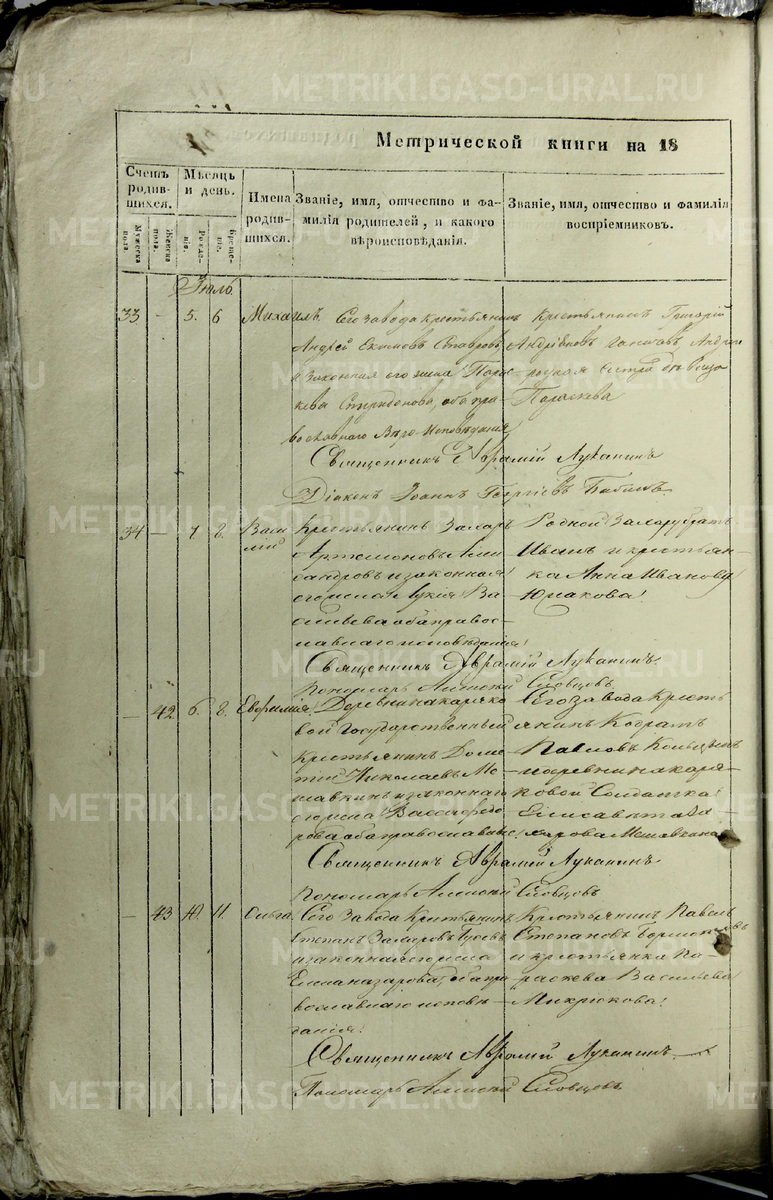 Метрической книги на 18
Счетъ родившихся.
Мужеска пола.
Женска пола.
Мѣсяцъ и день.
Рожденія.
Крещенія.
Имена родившихся.
Званіе, имя, отчество и фамилія родителей, и какого вѣроисповѣданія.
Званіе, имя, отчество и фамилія воспріемниковъ.
33 - 5. 6 Михаилъ. Сего завода крестьянинъ
Андрей
и законная его жена Пара-
скева Спиридонова, оба пра-
вославнаго Вѣро-Исповѣданія
Крестьянинъ Григорій
родная сестра дѣвица
Параскева
Священникъ Аврамій Луканинъ
Діаконъ Іоаннъ Георгіевъ Бабинъ
34 - 7 8. Васи-
лій
Крестьянинъ Захаръ
Артемоновъ
и законная
его жена Лукія Ва-
сильева оба правос-
лавнаго исповѣданія
Родной Захару братъ
Иванъ и крестьян-
ка Анна Иванова
Юшкова
Священникъ Аврамій Луканинъ.
Пономарь Алексій Словцовъ
- 42 6. 8. Евфимія. Деревни
вой Государственный
крестьянинъ Доме-
тій Николаевъ Ме-
шавкинъ и законная
его жена Васса Федо-
рова оба православные
Сего завода Кресть-
янинъ Кодратъ
Павловъ
и деревни
ковой Солдатка
Елисавета
Мешавкина
Священникъ Аврамій Луканинъ
Пономарь Алексій Словцовъ
- 43 10. 11. Ольга. Сего Завода Крестьянинъ
Степанъ Захаровъ Гусевъ
и законная его жена
Елена Назарова, оба пра-
вославнаго исповѣ-
данія
Крестьянинъ Павелъ
Степановъ
и крестьянка Па-
раскева Васильева
Микрюкова
Священникъ Аврамій Луканинъ
Пономарь Алексій Словцовъ
METRIKI.GASO-URAL.RU